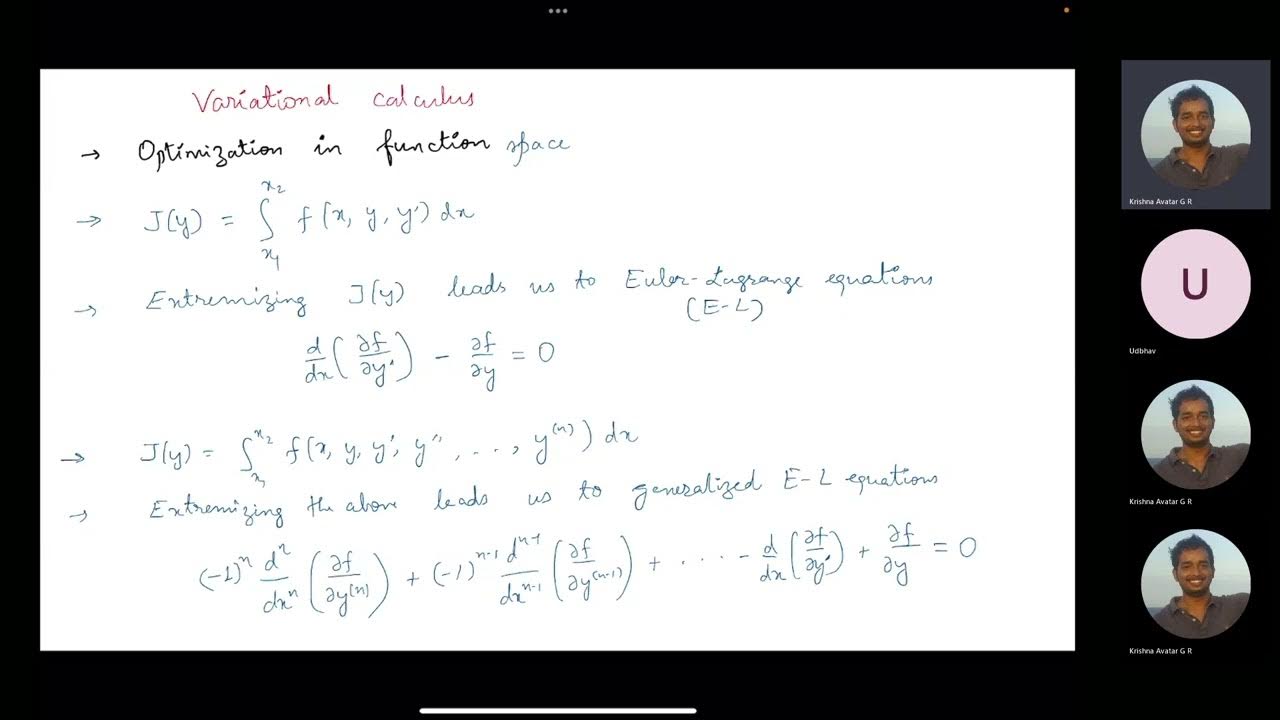 Variational calculus
→ Optimization in function space
→ J(y) = ∫_{x₁}^{x₂} f(x, y, y') dx
→ Extremizing J(y) leads us to Euler-Lagrange equations
(E-L)
d/dx (∂f/∂y') - ∂f/∂y = 0
→ J(y) = ∫_{x₁}^{x₂} f(x, y, y', y'', ..., y^(n)) dx
→ Extremizing the above leads us to generalized E-L equations
(-1)^n d^n/dx^n (∂f/∂y^(n)) + (-1)^{n-1} d^{n-1}/dx^{n-1} (∂f/∂y^(n-1)) + .... - d/dx (∂f/∂y') + ∂f/∂y = 0
Krishna Avatar G R
U
Udbhav
Krishna Avatar G R
Krishna Avatar G R